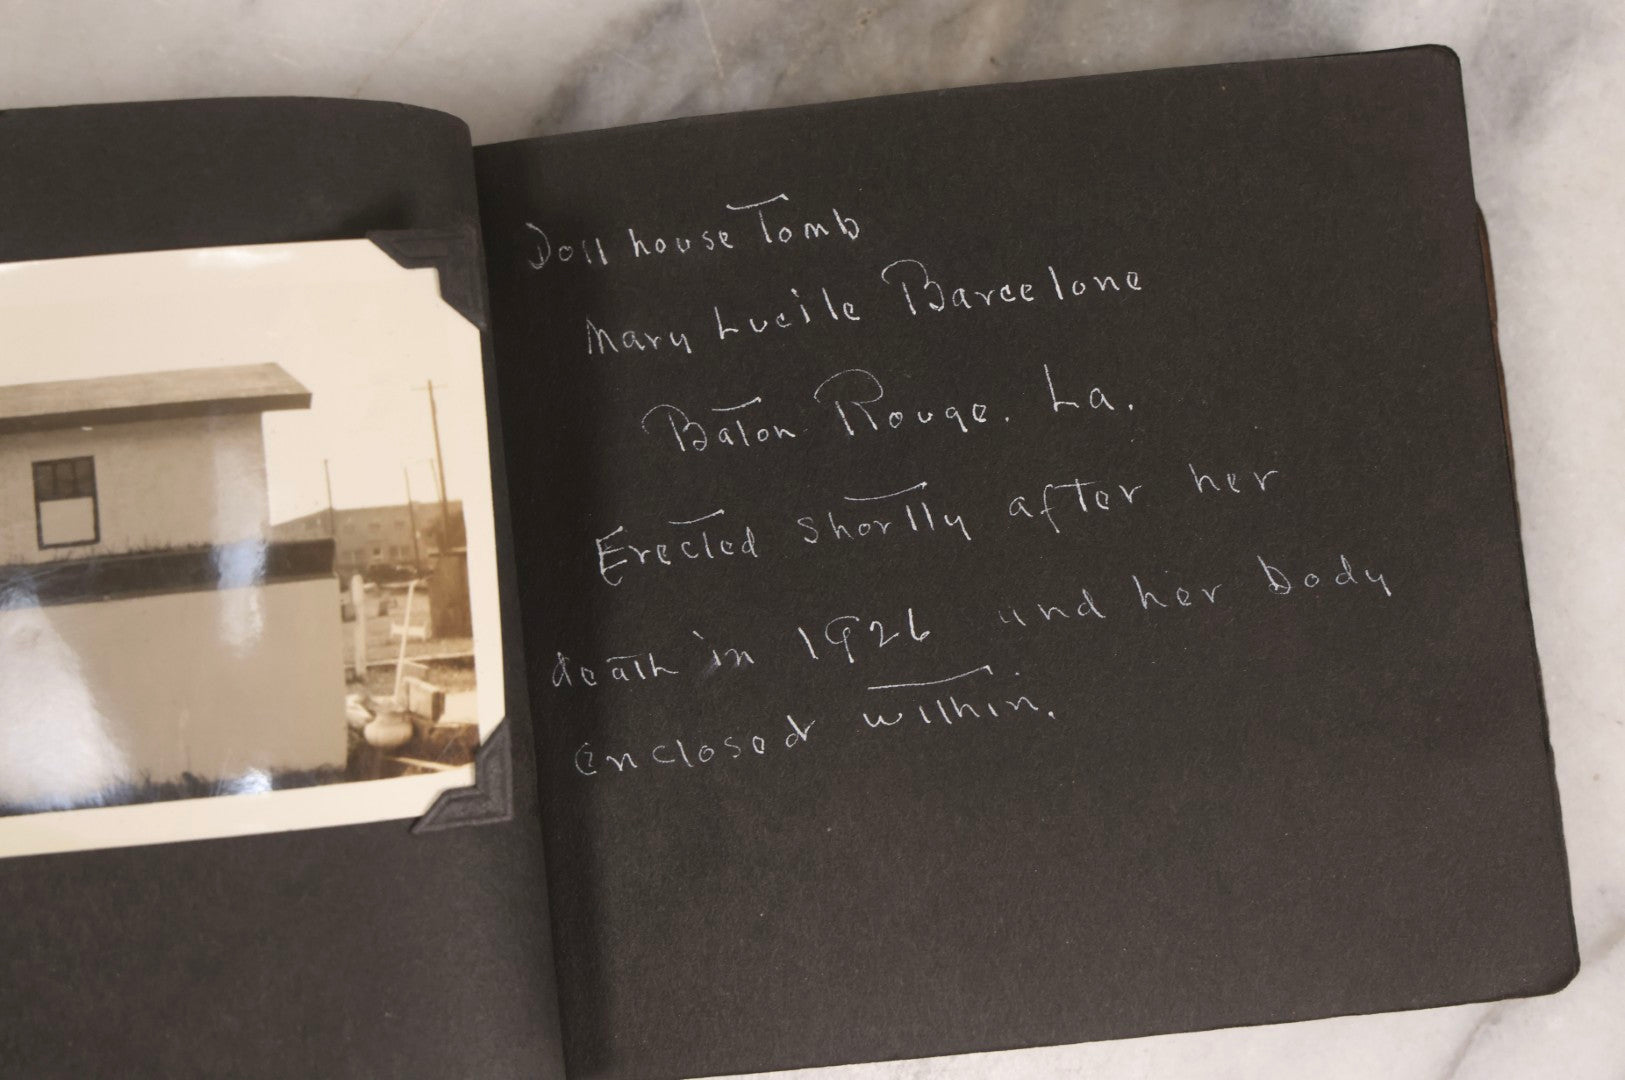 Doll house Tomb
Mary Lucile Barcelone
Baton Rouge. La.
Erected shortly after her
death in 1926 and her body
enclosed within.